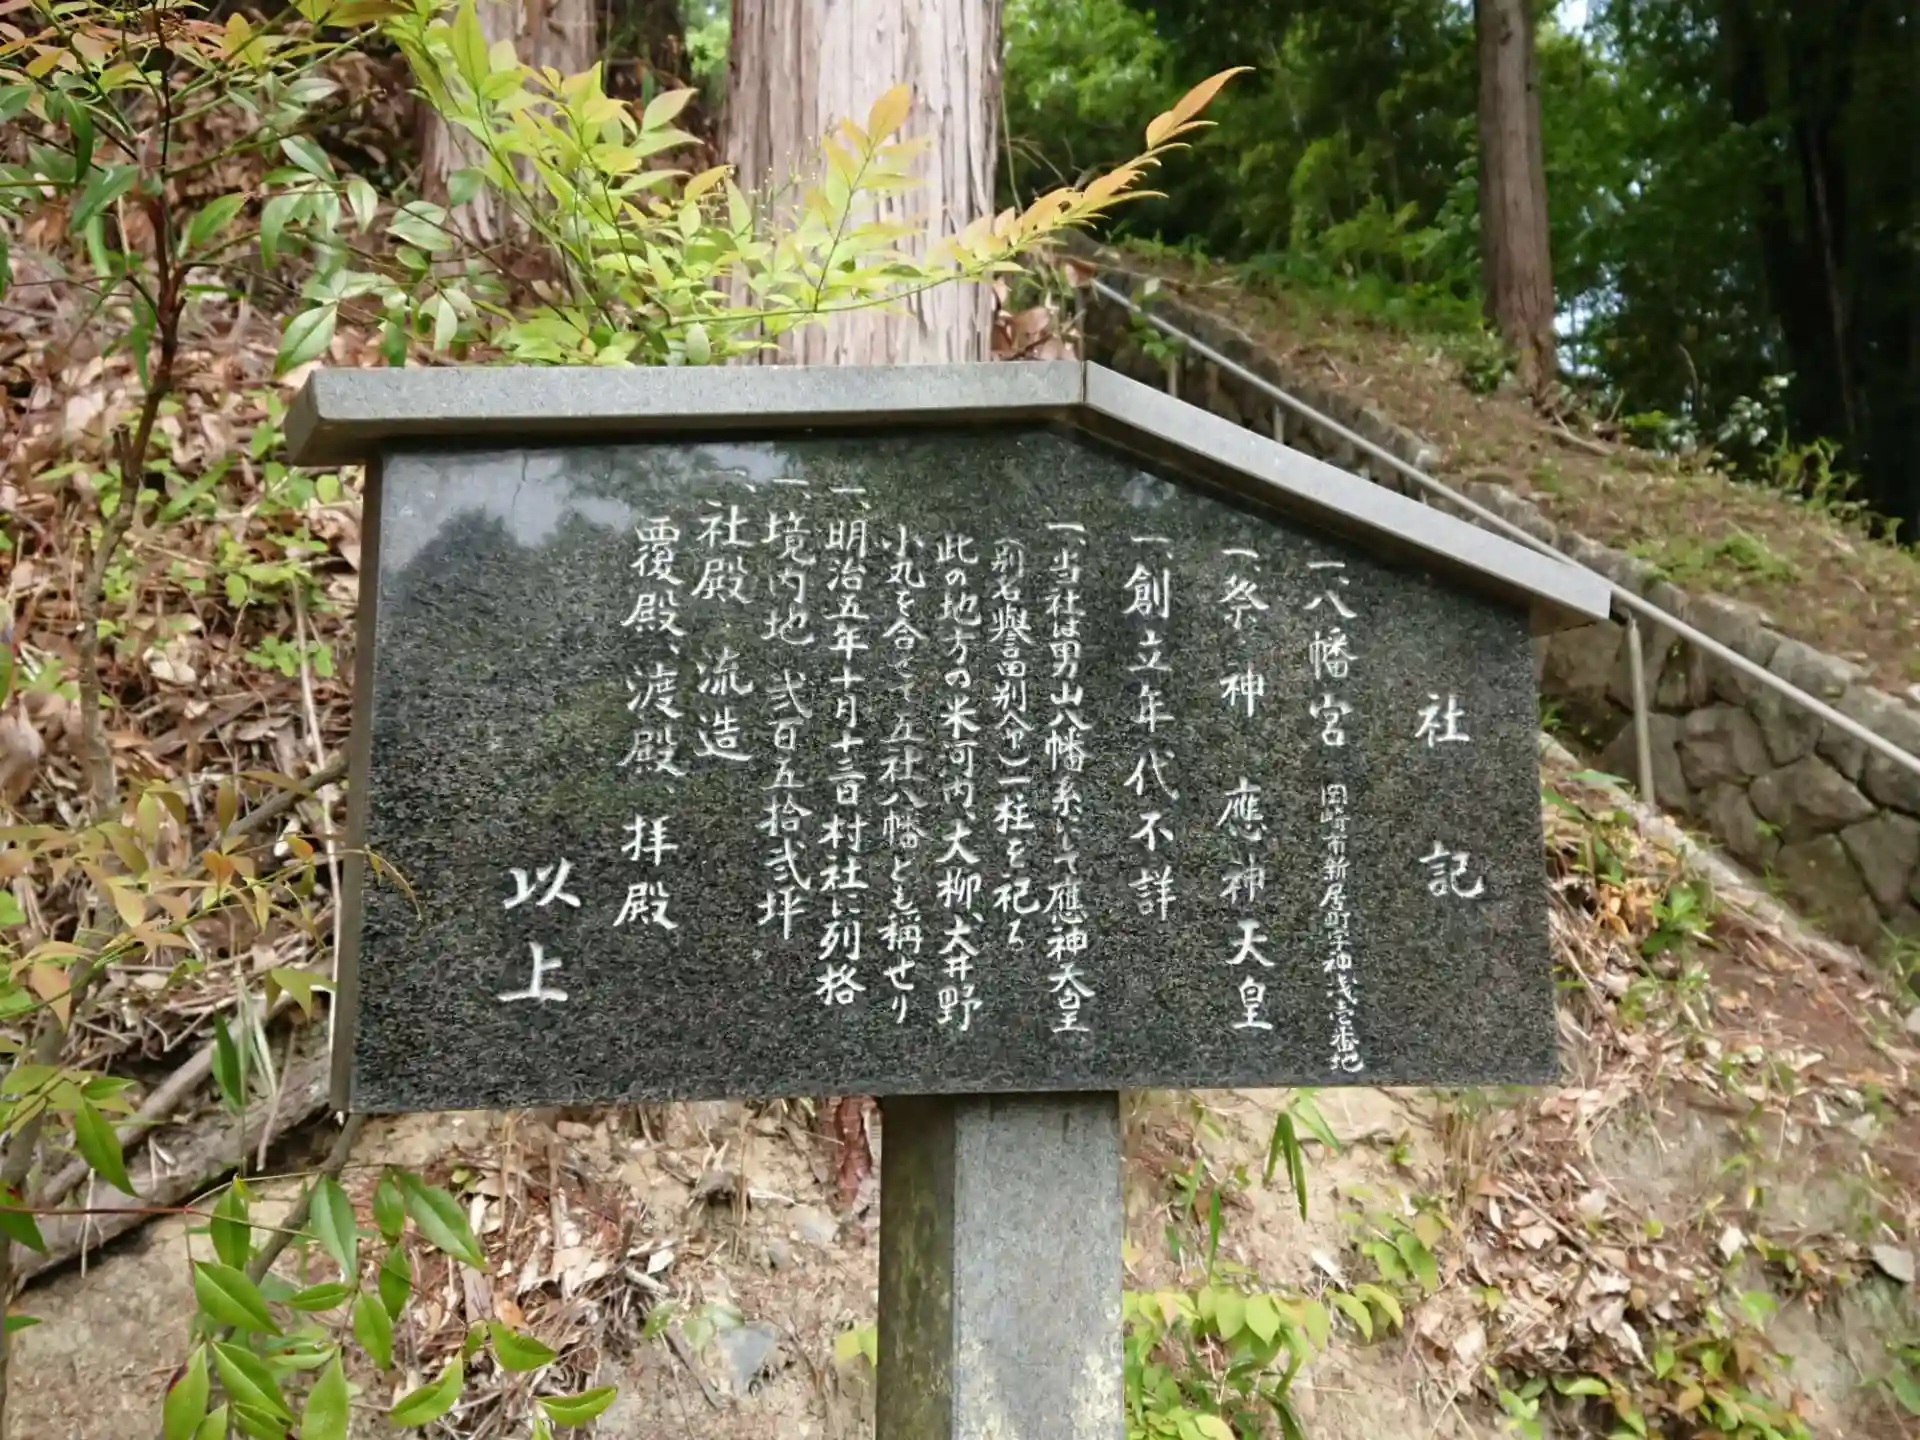 社記
一、八幡宮 岡崎市新居町字神浅壱番地
一、祭神 應神天皇
一、創立年代不詳
一、当社は男山八幡系にて應神天皇
(別名譽田別命)一柱を祀る
此の地方の米河内、大柳、大井野
小丸を合せて五社八幡とも称せり
一、明治五年十月十三日村社に列格
一、境内地 弐百五拾弐坪
一、社殿 流造
覆殿、渡殿、拝殿
以上